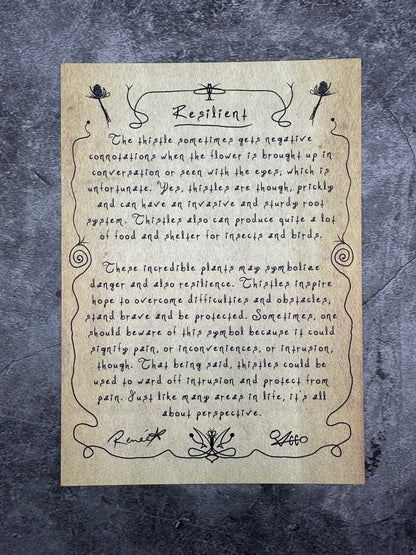 Resilient
The thistle sometimes gets negative
connotations when the flower is brought up in
conversation or seen with the eyes; which is
unfortunate. Yes, thistles are though, prickly
and can have an invasive and sturdy root
system. Thistles also can produce quite a lot
of food and shelter for insects and birds.
These incredible plants may symbolize
danger and also resilience. Thistles inspire
hope to overcome difficulties and obstacles;
stand brave and be protected. Sometimes, one
should beware of this symbol because it could
signify pain, or inconveniences, or intrusion;
though. That being said, thistles could be
used to ward off intrusion and protect from
pain. Just like many areas in life, it's all
about perspective.